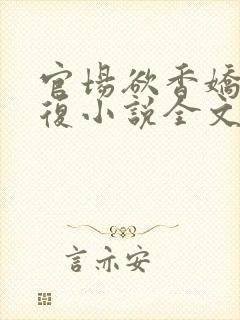 官場欲香嬌
復小說全文
言亦安